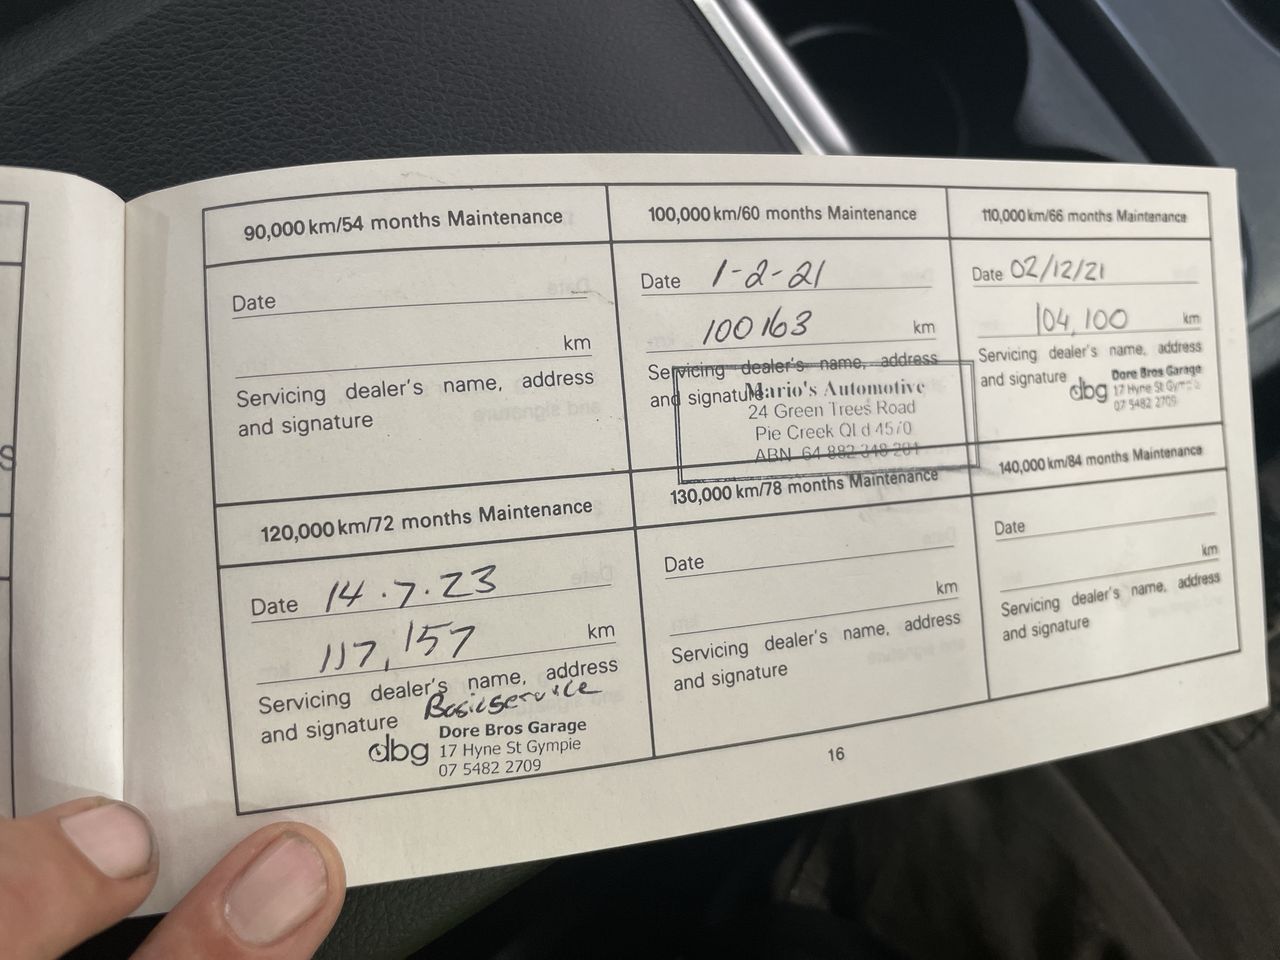 S
90,000 km/54 months Maintenance
Date
km
Servicing dealer's name, address
and signature
100,000 km/60 months Maintenance
Date 1-2-21
100163 km
Servicing dealer's name, address
and signature
Mario's Automotive
24 Green Trees Road
Pie Creek Qld 4570
ABN 64 882
110,000 km/66 months Maintenance
Date 02/12/21
104,100 km
Servicing dealer's name, address
and signature
dbg
Dore Bros Garage
17 Hyne St Gympie
07 5482 2709
120,000 km/72 months Maintenance
Date 14.7.23
117,157 km
Servicing dealer's name, address
and signature Basic service
dbg
Dore Bros Garage
17 Hyne St Gympie
07 5482 2709
130,000 km/78 months Maintenance
Date
km
Servicing dealer's name, address
and signature
140,000 km/84 months Maintenance
Date
km
Servicing dealer's name, address
and signature
16